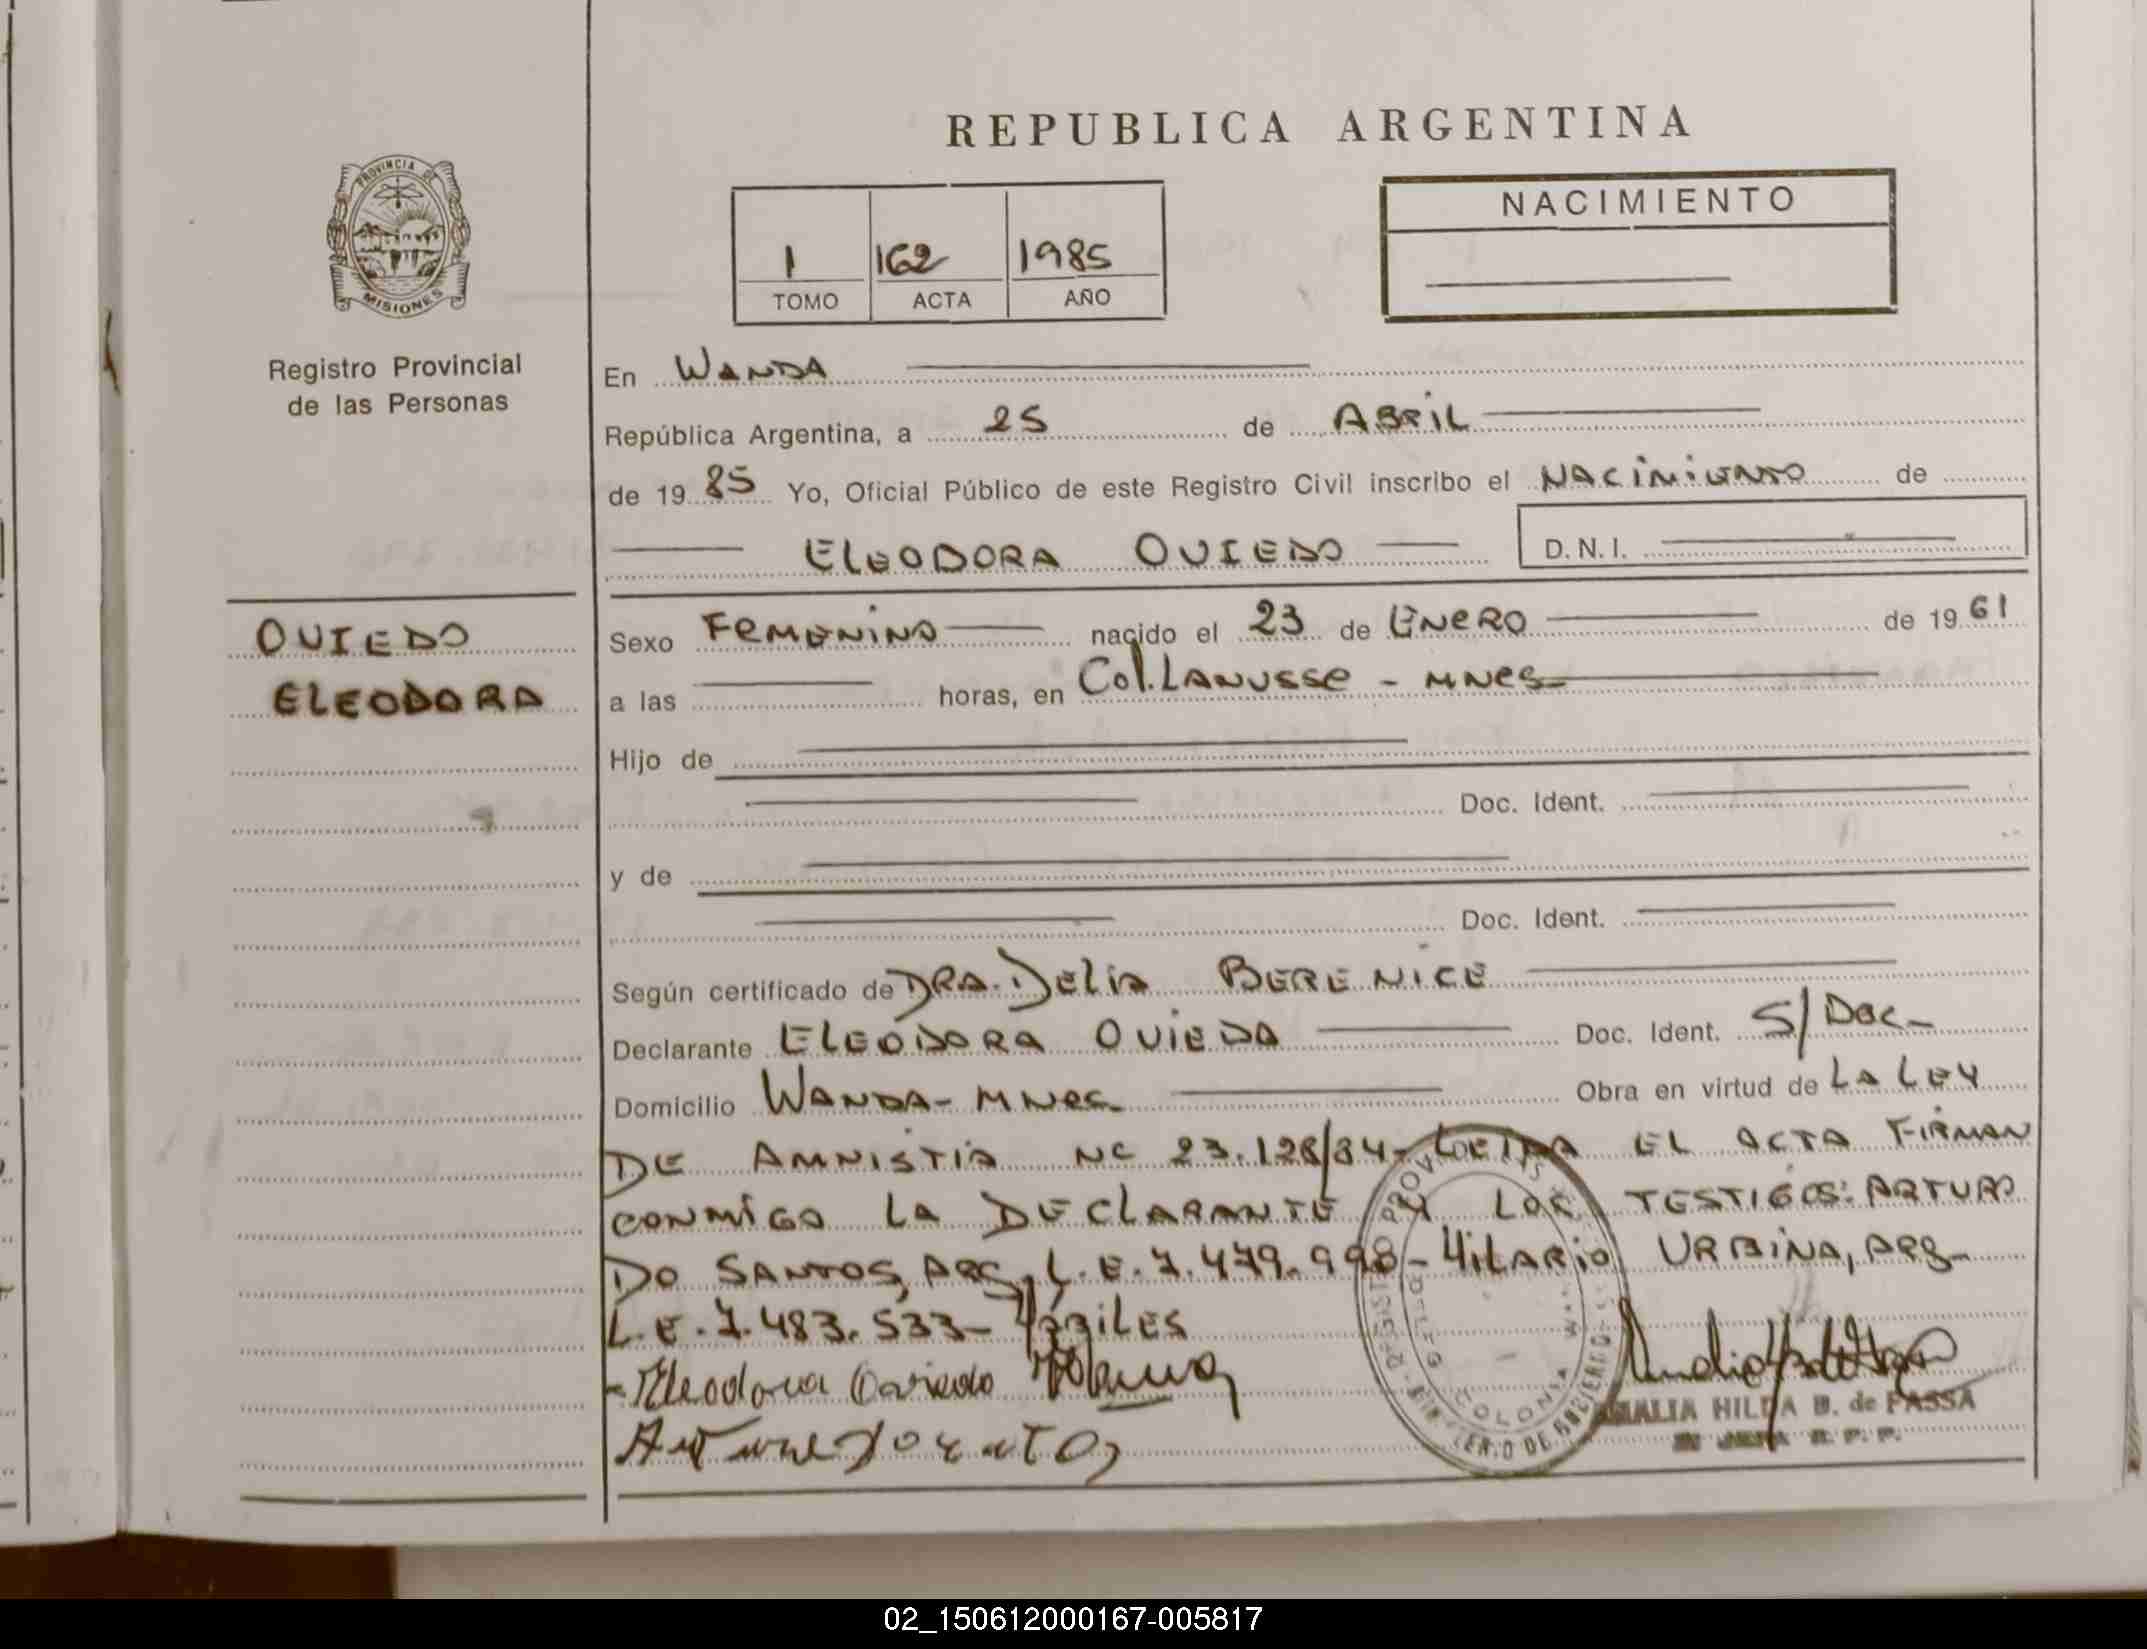 REPUBLICA ARGENTINA
PROVINCIA DE
MISIONES
Registro Provincial
de las Personas
1 162 1985
TOMO ACTA AÑO
NACIMIENTO
En WANDA
República Argentina, a 25 de ABRIL
de 19 85 Yo, Oficial Público de este Registro Civil inscribo el NACIMIENTO de
ELEODORA OVIEDO D.N.I.
OVIEDO
ELEODORA
Sexo FEMENINO nacido el 23 de ENERO de 19 61
a las horas, en Col. LANUSSE - MNES
Hijo de
Doc. Ident.
y de
Doc. Ident.
Según certificado de DRA. DELIA BERENICE
Declarante ELEODORA OVIEDO Doc. Ident. S/Doc-
Domicilio WANDA - MNES Obra en virtud de LA LEY
DE AMNISTIA Nº 23.128/84- LEIDA EL ACTA FIRMAN
CONMIGO LA DECLARANTE Y LOS TESTIGOS: ARTURO
DO SANTOS, ARG, L.E. 7.479.998 - HILARIO URBINA, ARG-
L.E. 7.483.533- HABILES
Eleodora Oviedo
AMALIA HILDA B. de PASSA
COLONIA WA
MINISTERIO DE GOBIERNO
02_150612000167-005817